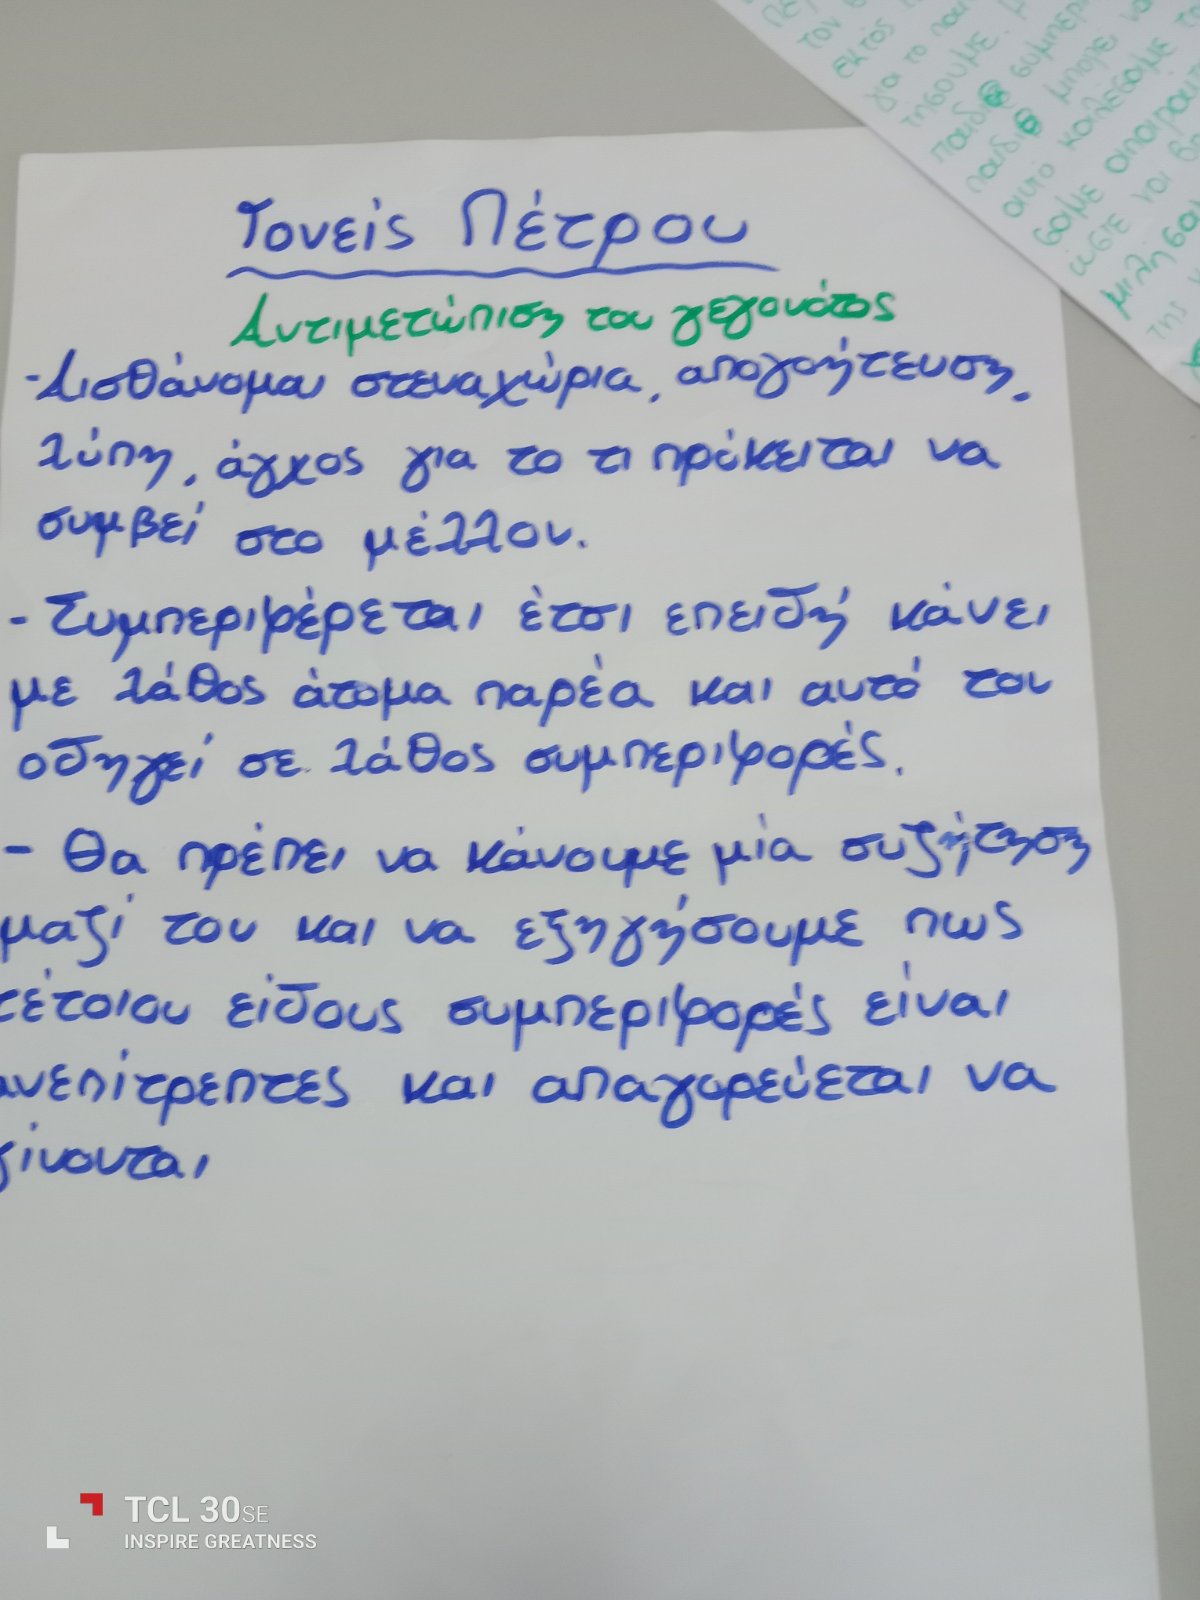 Γονείς Πέτρου
Αντιμετώπιση του γεγονότος
-Αισθάνομαι στεναχώρια, απογοήτευση,
λύπη, άγχος για το τι πρόκειται να
συμβεί στο μέλλον.
- Συμπεριφέρεται έτσι επειδή κάνει
με λάθος άτομα παρέα και αυτό τον
οδηγεί σε λάθος συμπεριφορές.
- Θα πρέπει να κάνουμε μία συζήτηση
μαζί του και να εξηγήσουμε πως
τέτοιου είδους συμπεριφορές είναι
ανεπίτρεπτες και απαγορεύεται να
γίνονται
τον
εκτός
για το
τησουμε.
παιδι συμπερι
παιδι μπορεί να
αυτό καλέσαμε
σαμε απαραιτ
ώστε να
μιλήσου
της
TCL 30SE
INSPIRE GREATNESS